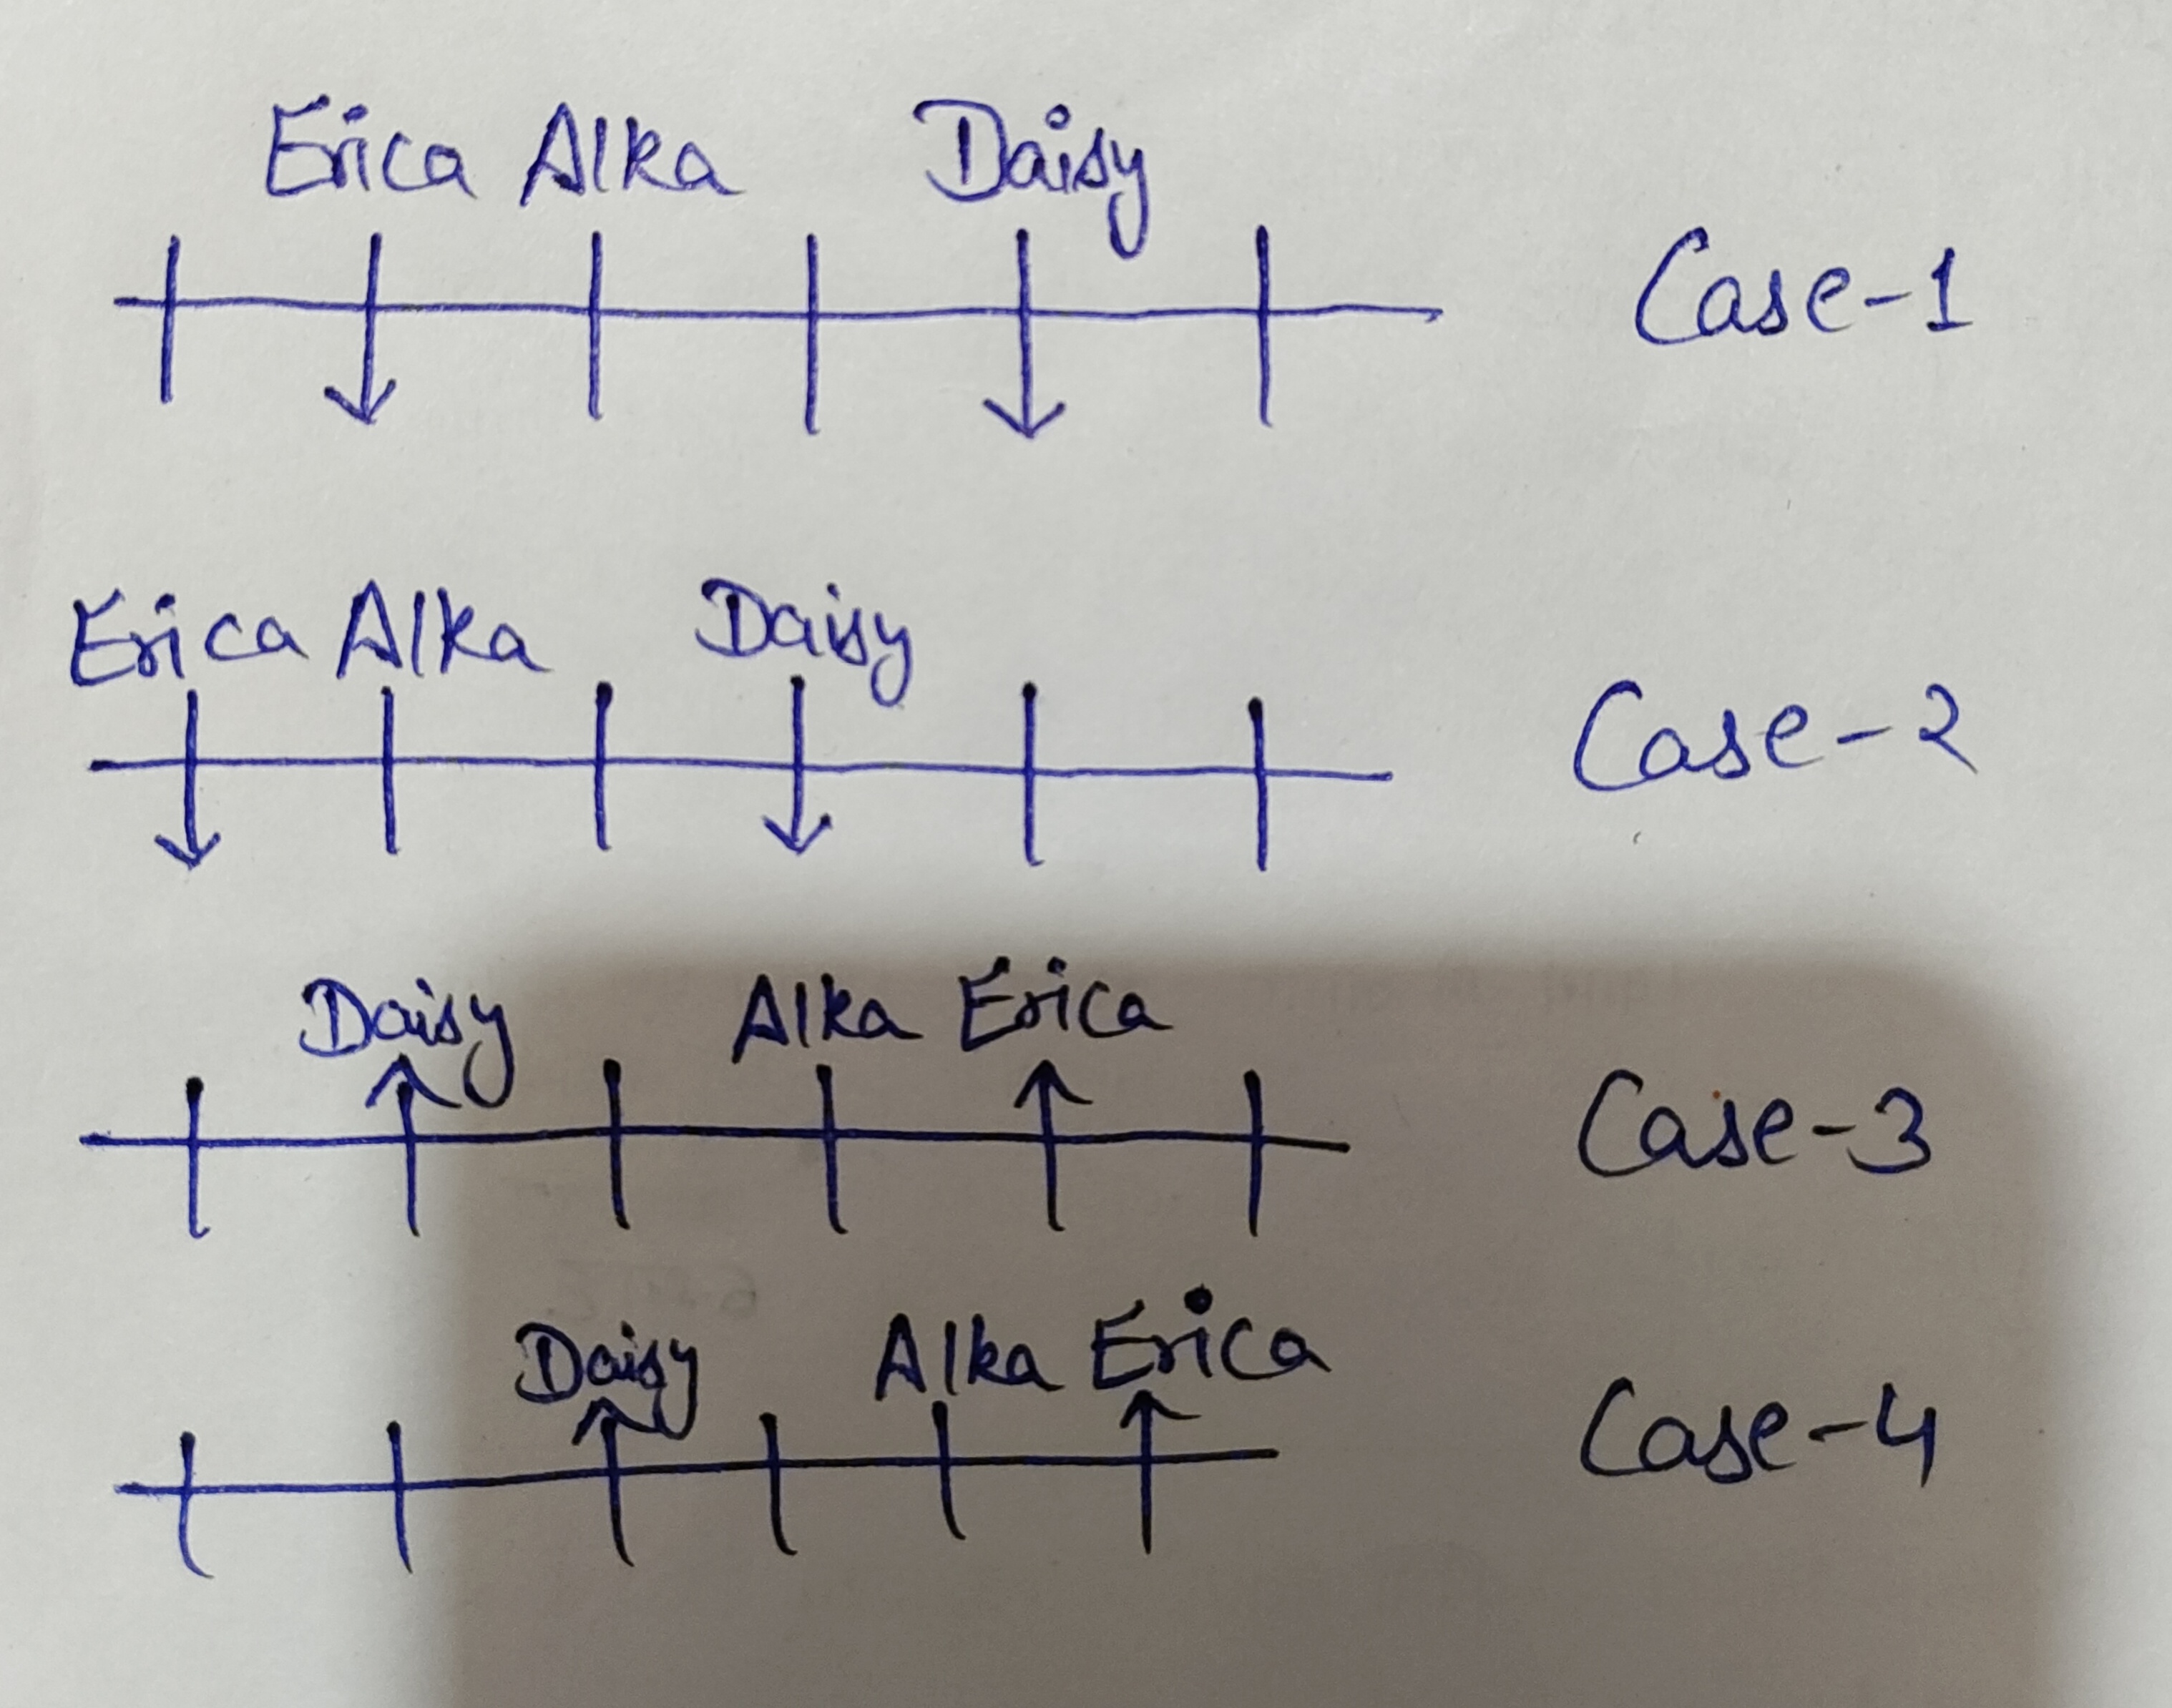 Erica Alka Daisy
Case-1
Erica Alka Daisy
Case-2
Daisy Alka Erica
Case-3
Daisy Alka Erica
Case-4